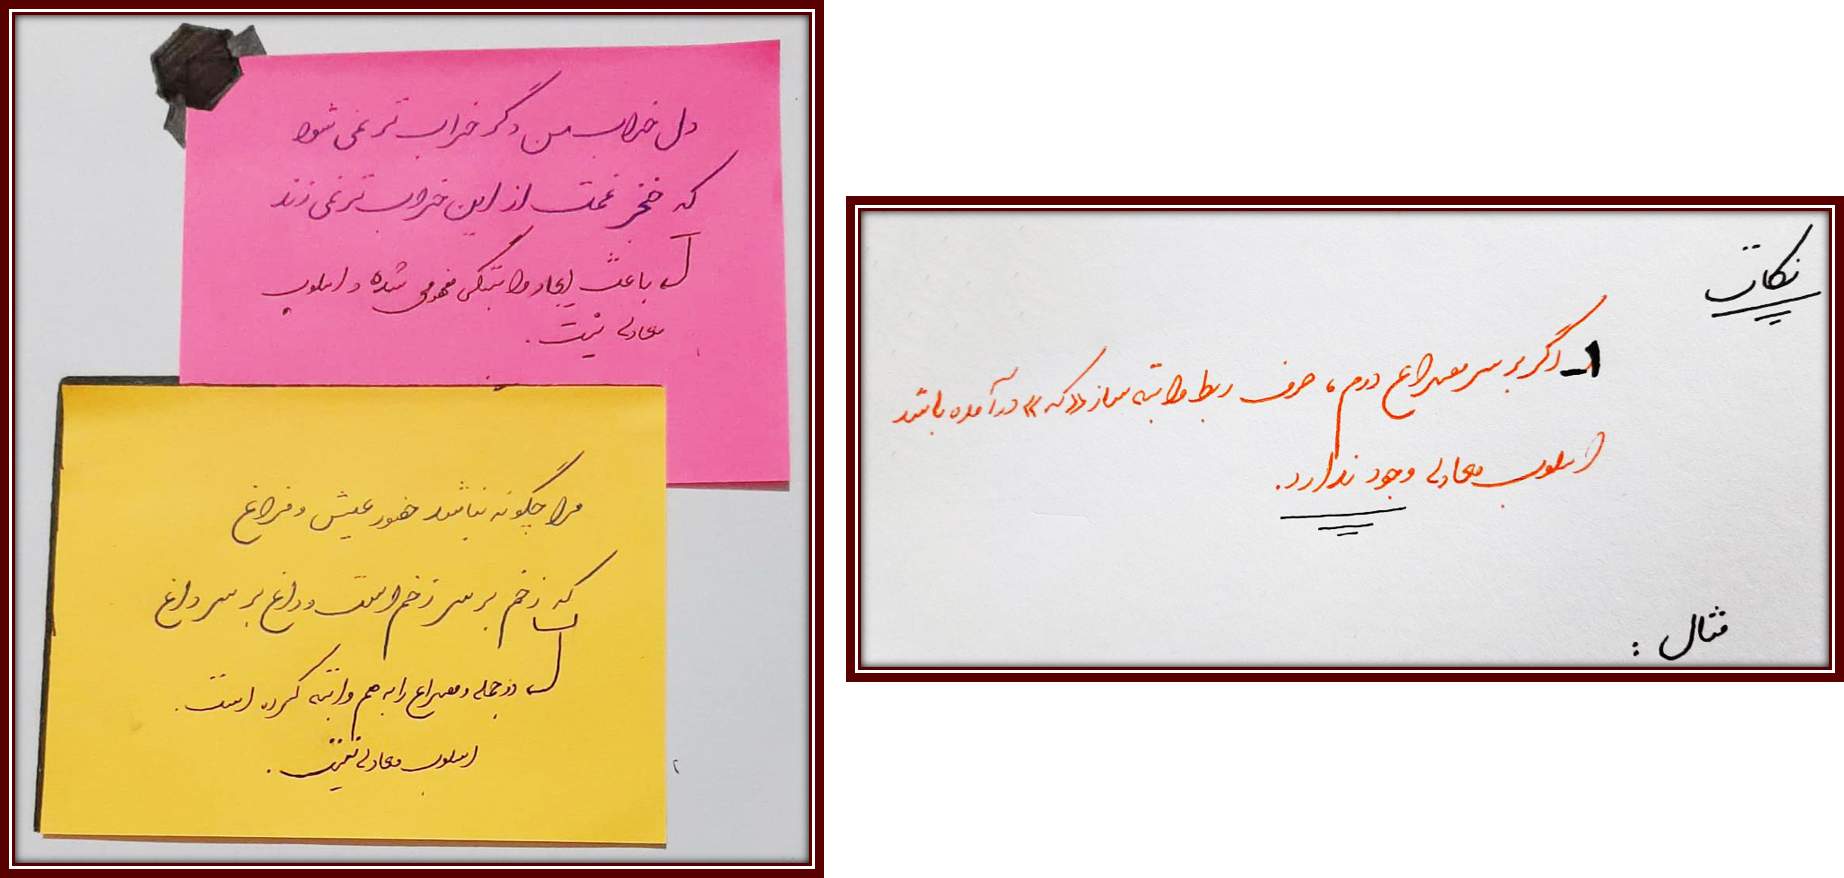 دل خراب من دگر خراب تر نمی شود
که خنجر غمت از این خراب تر نمی زند
باعث ایجاد وابستگی مفهومی شده و اسلوب
معادله نیست.
مرا چگونه نباشد حضور عیش و فراغ
که زخم بر سر زخم است و داغ بر سر داغ
دو جمله و مصراع را به هم وابسته کرده است.
اسلوب معادله نیست.
نکات
۱_ اگر بر سر مصراع دوم، حرف ربط وابسته ساز «که» در آمده باشد
اسلوب معادله وجود ندارد.
مثال: